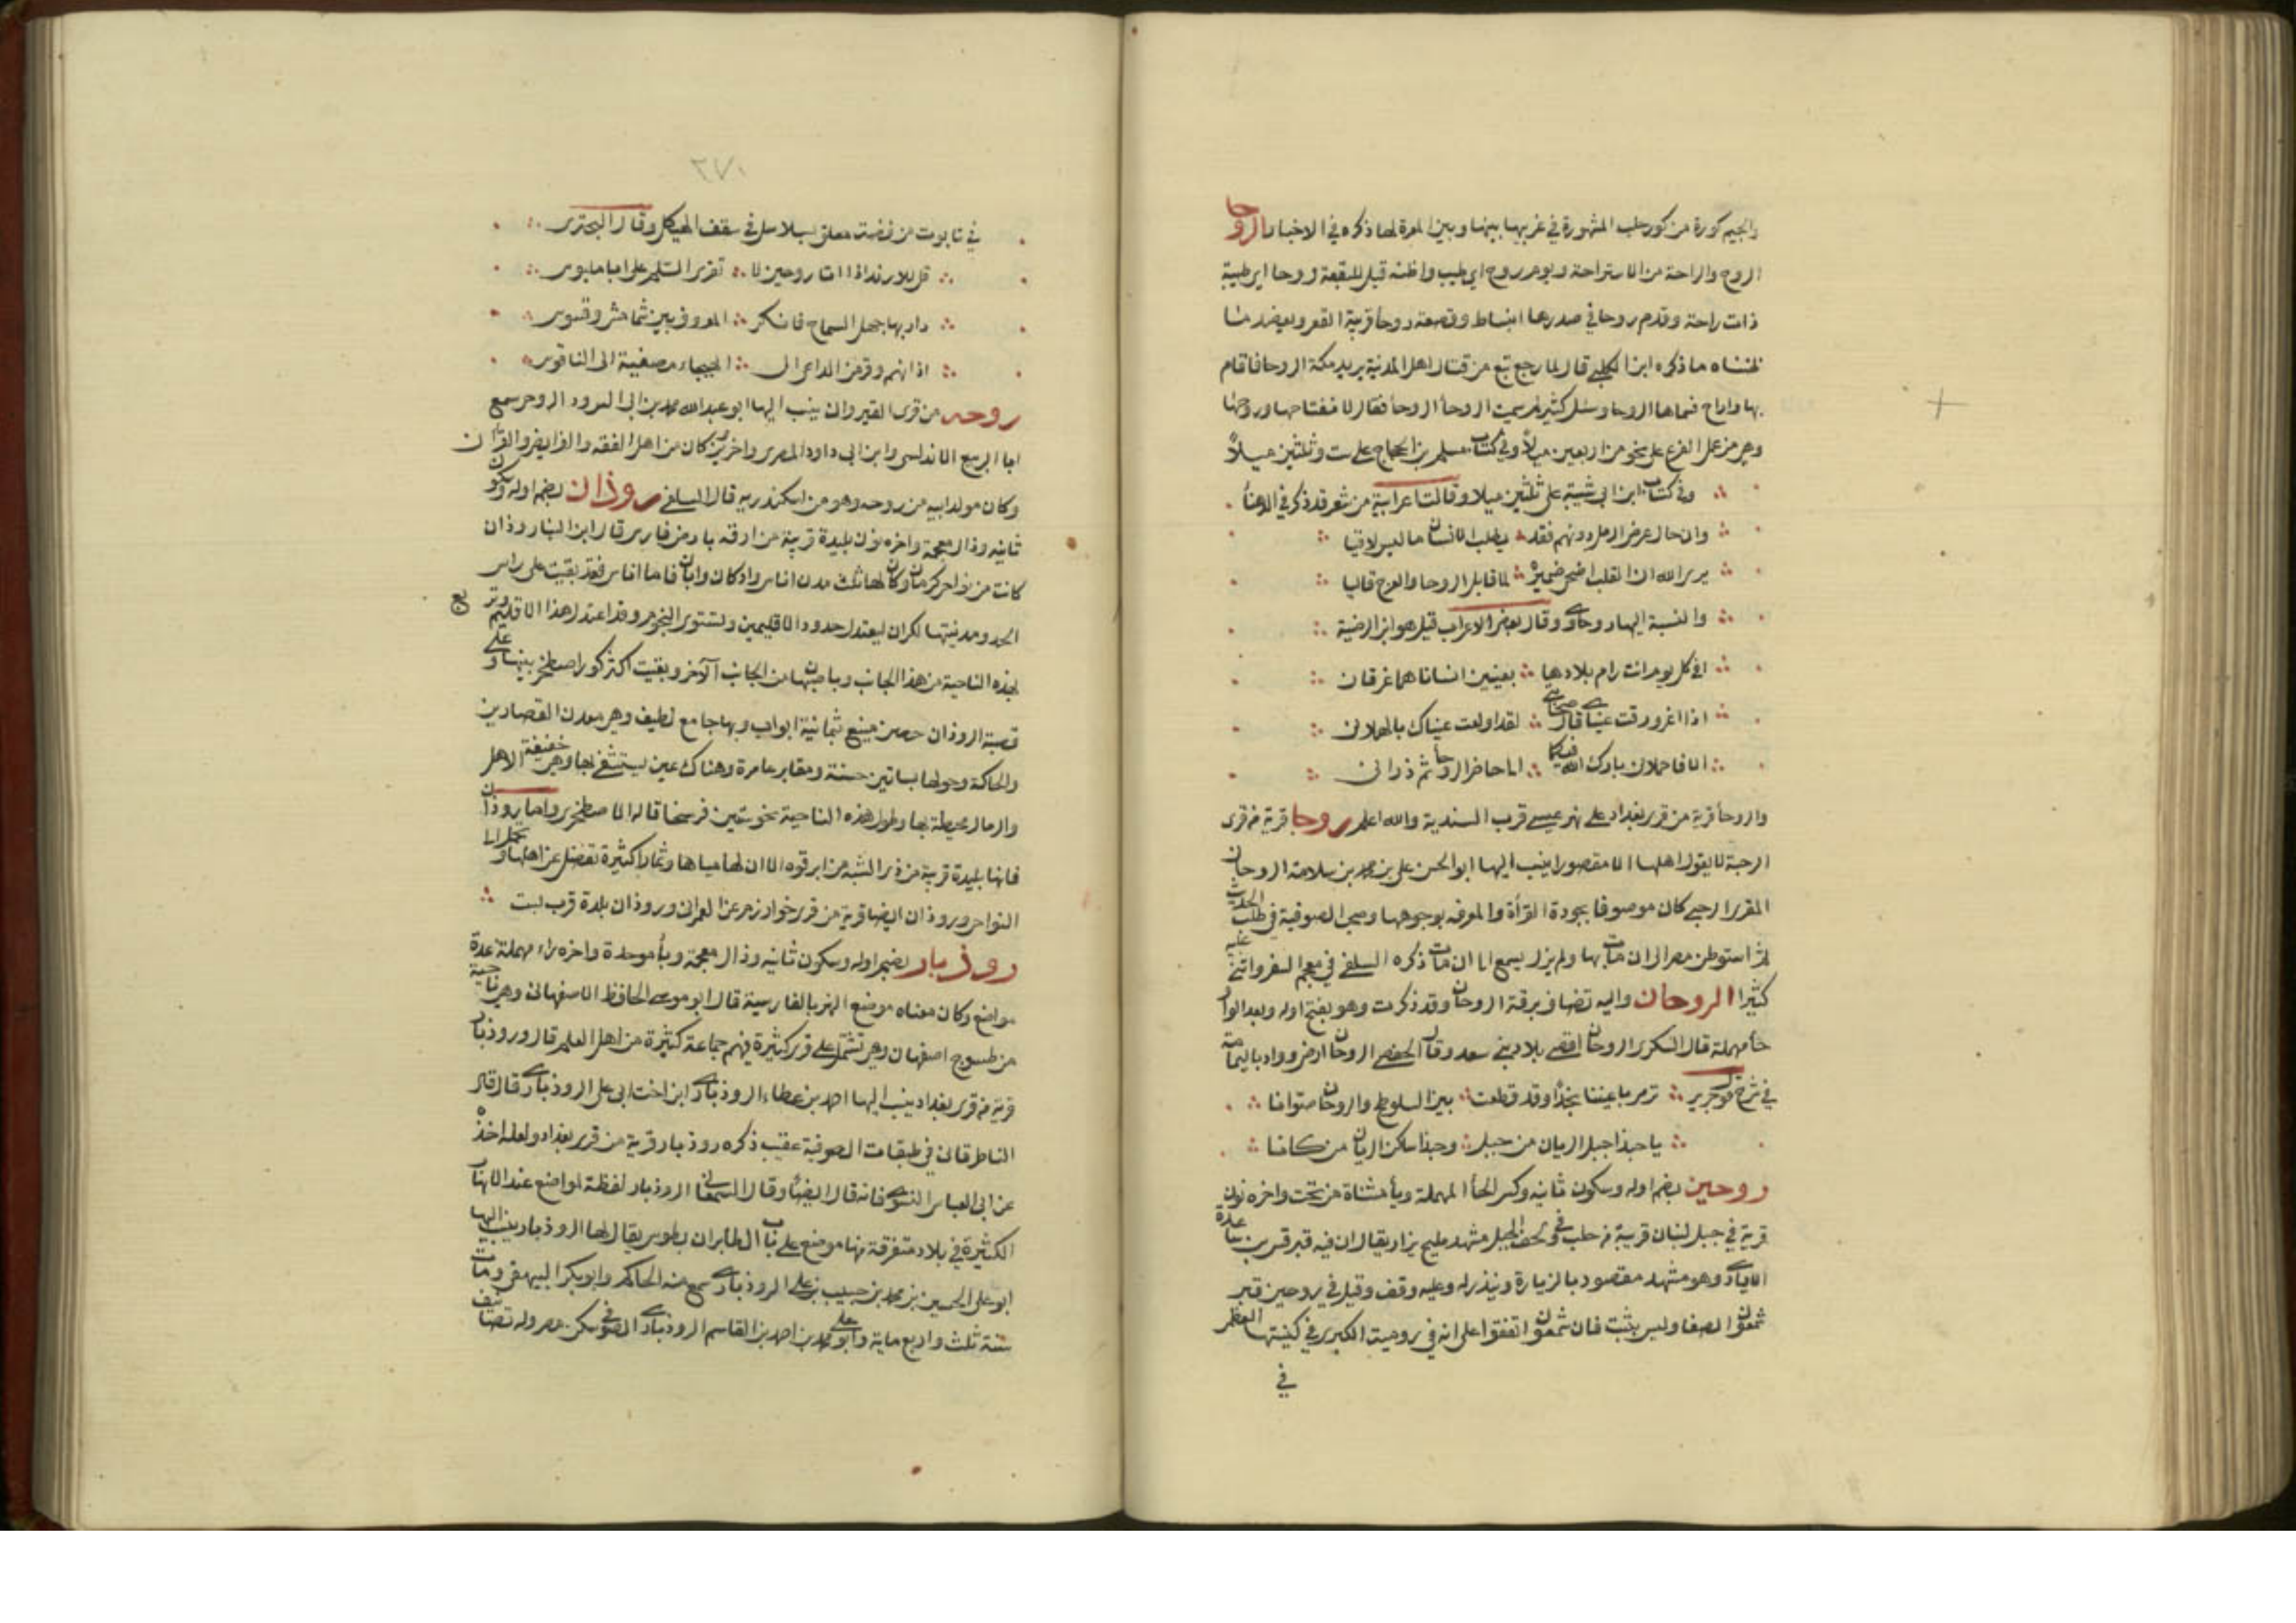 والجيم كورة من كور حلب المشهورة في غربيها بينها وبين المعرة لها ذكر في الاخبار الروحا
الروح والراحة من الاستراحة ويوم روح اي طيب واظنه قيل للبقعة روحا اي طيبة
ذات راحة وقدم روحا في صدرها انبساط وقصعة روحا قريبة القعر ويعضد هذا
ما ذكره ابن الكلبي قال لما رجع تبع من قتال اهل المدينة يريد مكة الروحا فاقام
بها واراح فسماها الروحا وسئل كثير لم سميت الروحا الروحا فقال لانفتاحها وروحها
وهي من عمل الفرع على نحو من اربعين ميلا وفي كتاب مسلم بن الحجاج على ست وثلثين ميلا
وفي كتاب ابن ابي شيبة على ثلثين ميلا وقالت اعرابية من شعر قد ذكر في الدهنا
وان حال عرض الرمل دونهم فقد يطلب الانسان ما ليس لاقيا
يرى الله ان القلب اضحى ضميره لما قابل الروحا والعرج قاليا
والنسبة اليها روحاوي وقال بعض الاعراب قيل هو ابن الرضية
افي كل يوم انت رام بلادها بعينين انساناهما غرقان
اذا اغرورقت عيناي قال صحابتي لقد اولعت عيناك بالهملان
الا فاحملاني بارك الله فيكما الى حاضر الروحا ثم ذراني
والروحا قرية من قرى بغداد على نهر عيسى قرب السندية والله اعلم روحا قرية من قرى
الرحبة لا يقول اهلها الا مقصورا ينسب اليها ابو الحسن علي بن محمد بن سلامة الروحاني
المقري الرحبي كان موصوفا بجودة القرأة والمعرفة بوجوهها وصحب الصوفية في طلب الحديث
ثم استوطن مصر الى ان مات بها ولم يزل يسمع الى ان مات ذكره السلفي في معجم السفر واثنى عليه
كثيرا الروحان واليه تضاف برقة الروحان وقد ذكرت وهو بفتح اوله وبعد الواو
حا مهملة قال السكري الروحان اقصى بلاد بني سعد وقال الحفصي الروحان ارض وواد باليمامة
في شرح قول جرير ترمي باعينها نجدا وقد قطعت بين السلوطح والروحان صوانا
يا حبذا جبل الريان من جبل وحبذا ساكن الريان من كانا
روحين بضم اوله وسكون ثانيه وكسر الحا المهملة ويا مثناة من تحت واخره نون
قرية في جبل لبنان قريبة من حلب وفي لحف الجبل مشهد مليح يزار يقال ان فيه قبر قس بن ساعدة
الايادي وهو مشهد مقصود بالزيارة وينذر له وعليه وقف وقيل في روحين قبر
شمعون الصفا وليس بثبت فان شمعون اتفقوا على انه في رومية الكبرى في كنيستها العظمى
في
٢٧٠
في تابوت من فضة معلق بسلاسل في سقف الهيكل وقال البحتري
قل للارند اذا اتى روحين لا تقرى السلم على ابي ملبوس
دار بها جهل السماح فانكر المعروف بين شمامس وقسوس
اذانهم وقر عن الداعي الى الهيجاء مصغية الى الناقوس
روحه من قرى القيروان ينسب اليها ابو عبد الله محمد بن ابي السرور الروحي سمع
ابا الربيع الاندلسي وابن ابي داود المصري واخرين كان من اهل الفقه والفرايض والقرآن
وكان مولد ابيه من روحه وهو من اسكندريه قاله السلفي روذان بضم اوله وسكون
ثانيه وذال معجمة واخره نون بليدة قريبة من ابرقوه بارض فارس قال ابن البنا روذان
كانت من نواحي كرمان وكان لها ثلث مدن اناس واذكان وابان فاما اناس فقد بقيت على راس
الحد ومدينتها لكران ليعتدل حدود الاقليمين وتستوي النجوم وقد اعتدل هذا الاقليم وتربع
بهذه الناحية من هذا الجانب وباصبهان من الجانب الآخر وبقيت اكثر كور اصطخر بينها وعلى
قصبة الروذان حصن منيع ثمانية ابواب وبها جامع لطيف وهي معدن القصارين
والحاكة وحولها بساتين حسنة ومقابر عامرة وهناك عين يستشفى بها وهي خفيفة الاهل
والرمال محيطة بها وطول هذه الناحية نحو ستين فرسخا قاله الاصطخري واما روذان
فانها بليدة قريبة من في الشبه من ابرقوه الا ان لها مياها وثمارا كثيرة تفضل عن اهلها وتحمل الى
النواحي وروذان ايضا قرية من قرى خوارزم عن العمراني وروذان بلدة قرب بست
روذبار بضم اوله وسكون ثانيه وذال معجمة وبأ موحدة واخره راء مهملة عدة
مواضع وكان معناه موضع النهر بالفارسية قال ابو موسى الحافظ الاصفهاني وهي ناحية
من طسوج اصفهان وهي تشتمل على قرى كثيرة فيهم جماعة كثيرة من اهل العلم قال وروذبار
قرية من قرى بغداد ينسب اليها احمد بن عطاء الروذباري ابن اخت ابي علي الروذباري قال قاله
الباطرقاني في طبقات الصوفية عقيب ذكره روذبار قرية من قرى بغداد ولعله اخذه
عن ابي العباس النسوي فانه قال ايضا وقال السمعاني الروذبار لفظة لمواضع عند الانهار
الكثيرة في بلاد متفرقة منها موضع على باب الطابران بطوس يقال لها الروذبار ينسب اليها
ابو علي الحسين بن محمد بن حبيب بن علي الروذباري سمع منه الحاكم وابو بكر البيهقي ومات
سنة ثلث واربع ماية وابو علي محمد بن احمد بن القاسم الروذباري الصوفي سكن مصر وله تصانيف